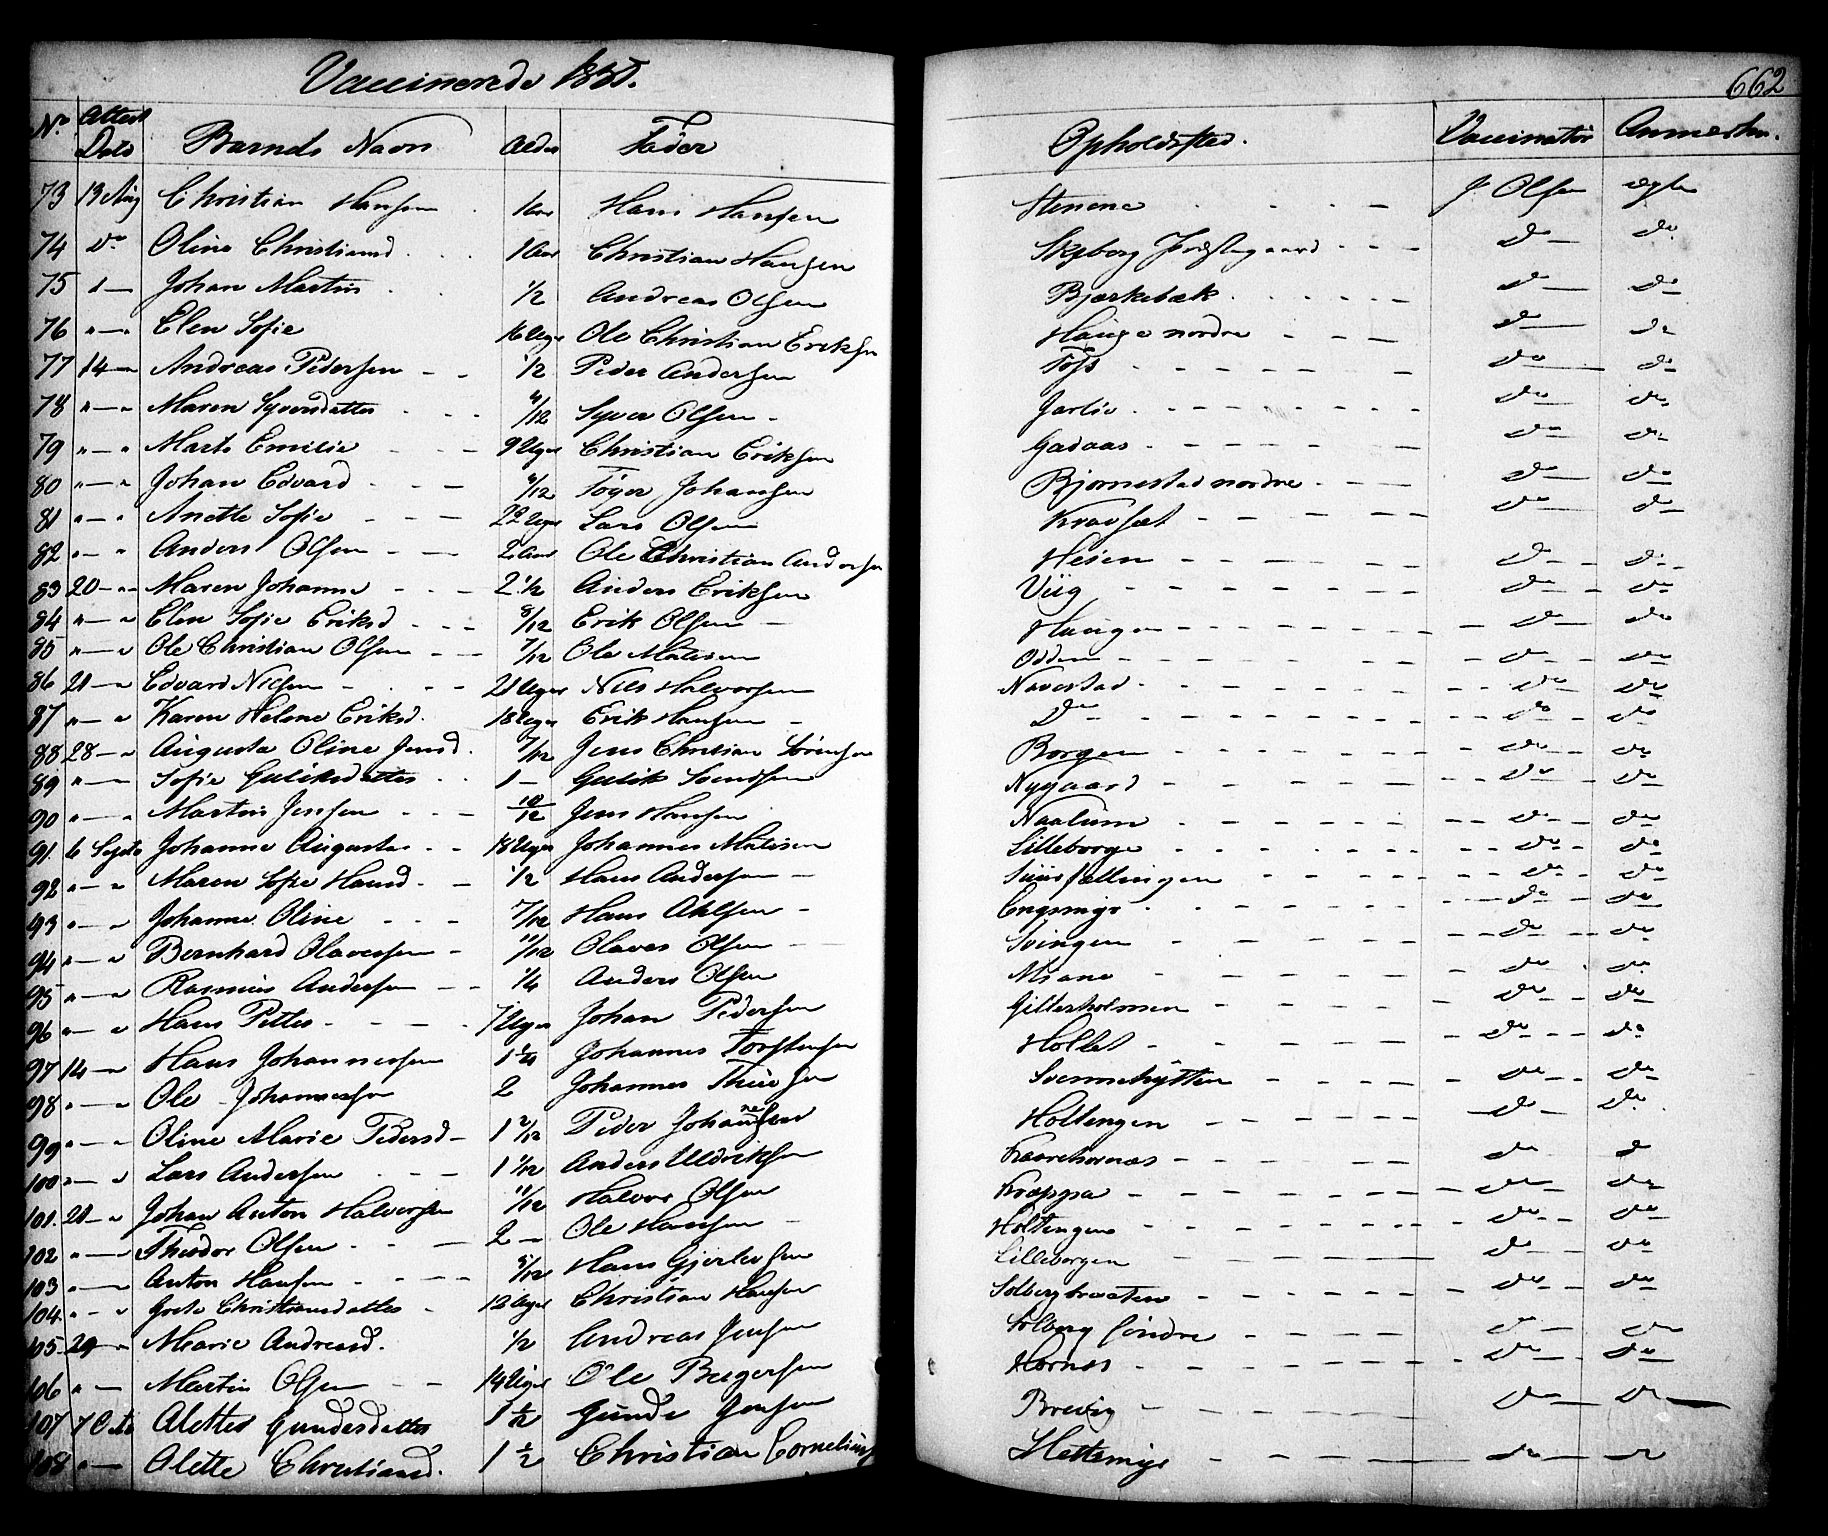 Vaccinerede 185
662
No Attest Dato Barnets Navn Alder Fader Opholdssted. Vaccinatør Anmærkn.
73 13 Aug Christian Hansen 1 Aar Hans Hansen Stenene J Olsen ægte
74 do Oline Christiansd 1 Aar Christian Hansen Skjeberg Præstegaard do do
75 " — Johan Martin 1/2 Andreas Olsen Bjørkebæk do do
76 " — " Elen Sofie 16 Uger Ole Christian Eriksen Hauge nordre do do
77 14 — Andreas Pedersen 1/2 Peder Andersen Foss do do
78 " — " Maren Syversdatter /12 Syver Olsen do do
79 " — " Marte Emilie 9 Uger Christian Eriksen Gadaas do do
80 " — " Johan Edvard /12 Johansen Bjørnestad nordre do do
81 " — " Anette Sofie 22 Uger Lars Olsen do do
82 " — " Anders Olsen 2 Aar Ole Christian Andersen do do
83 20 — " Maren Johanne 2 1/2 Anders Eriksen Viig do do
84 " — " Elen Sofie Eriksd 8/12 Erik Olsen Haugen do do
85 " — " Ole Christian Olsen 7/12 Ole Matisen Odden do do
86 21 — " Edvard Nilsen 21 Uger Nils Halvorsen Navestad do do
87 " — " Karen Helene Eriksd. 18 Uger Erik Hansen Do do do
88 28 — " Augusta Oline Jensd. 7/12 Jens Christian Sørensen Borgen do do
89 " — " Sofie Guliksdatter 1 — Gulik Svendsen Nygaard do do
90 " — " Martin Jensen 10/12 Jens Hansen Naalum do do
91. 6 Septe Johanne Augusta 18 Uger Johannes Matisen Lilleborge do do
92 " — " Maren Sofie Hansd. 1/2 Hans Andersen do do
93 " — " Johanne Oline 7/12 Hans Ahlsen Engemyr do do
94 " — " Bernhard Olavessen 11/12 Olaves Olsen Svingen do do
95 " — " Rasmus Andersen 1/4 Anders Olsen do do
96 " — " Hans Petter 7 Uger Johan Pedersen Gilterholmen do do
97 14 — " Hans Johannessen 1 Johannes Torstensen do do
98 " — " Ole Johannessen 2 Johannes do do
99 " — " Oline Marie Pedersd 1 2/12 Peder Johannesen Holtengen do do
100 " — " Lars Andersen 1 1/12 Anders Uldriksen do do
101. 21 — " Johan Anton Halvorsen 11/12 Halvor Olsen do do
102 " — Theodor Olsen 2 — Ole Hansen Holtengen do do
103 " — Anton Hansen /12 Hans Gjertsen Lilleborgen do do
104. " — " Grete Christiansdatter 12 Uger Christian Hansen Solbergbraaten do do
105. 29 — " Marie Andreasd. 1/2 Andreas Jensen Solberg søndre do do
106 " — Martin Olsen 14 Uger Ole Birgersen Hornes do do
107 7 Octo Alette Gundersdatter 1 Gunde Jensen Brevig do do
108 " — Olette Christiansd. 1 1/2 Christian Cornelius Hattemyr do do